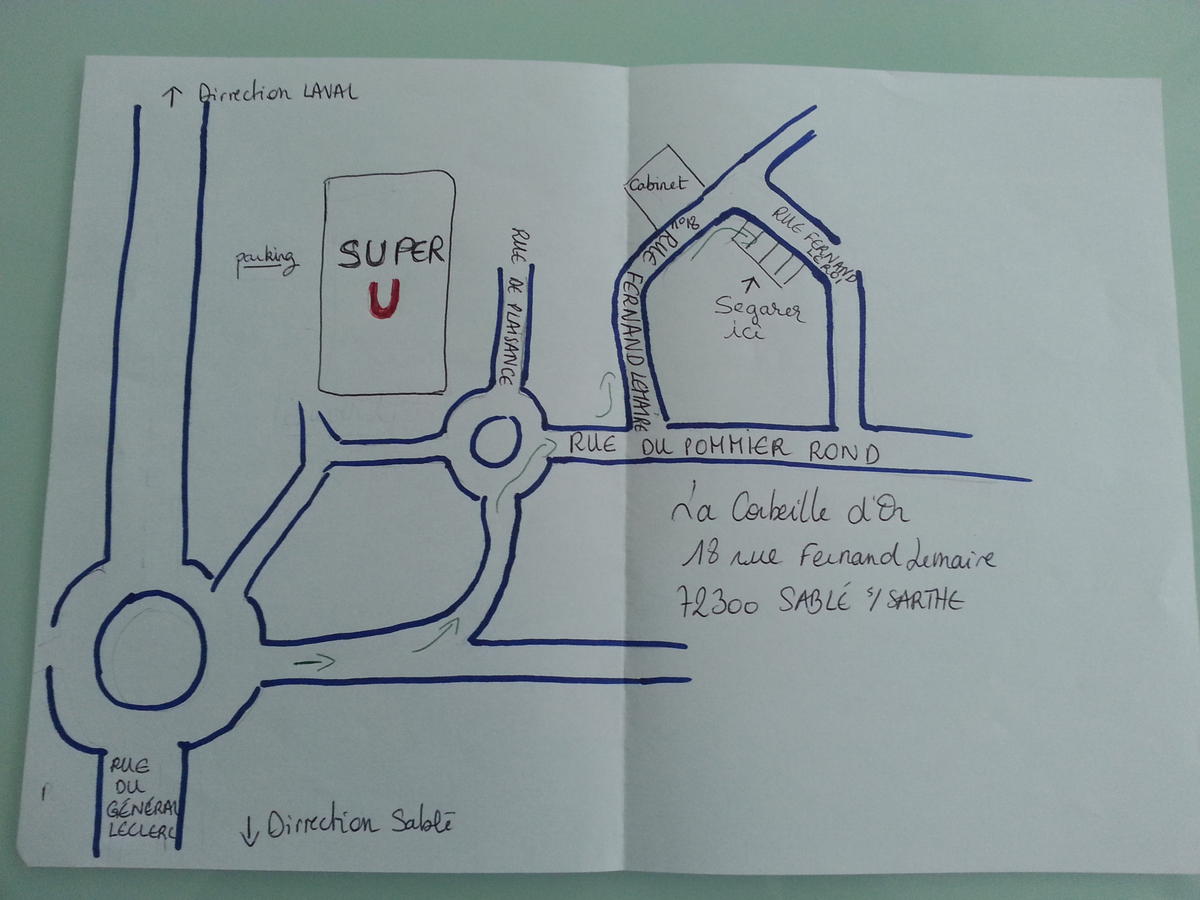 ↑ Dirrection LAVAL
parking
SUPER
U
RUE DE PLAISANCE
Cabinet
n°18
RUE FERNAND LEMAIRE
RUE FERNAND
LEROI
↑
Segarer
ici
RUE DU POMMIER ROND
La Corbeille d'Or
18 rue Fernand Lemaire
72300 SABLÉ S/ SARTHE
RUE
DU
GÉNÉRAL
LECLERC
↓ Dirrection Sablé